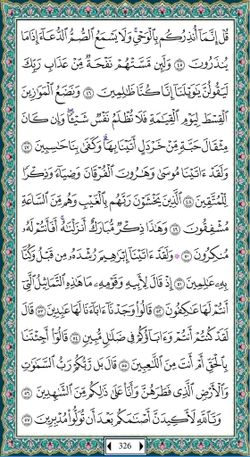 قُلْ إِنَّمَآ أُنذِرُكُم بِٱلْوَحْىِ ۚ وَلَا يَسْمَعُ ٱلصُّمُّ ٱلدُّعَآءَ إِذَا مَا
يُنذَرُونَ ٤٥ وَلَئِن مَّسَّتْهُمْ نَفْحَةٌ مِّنْ عَذَابِ رَبِّكَ
لَيَقُولُنَّ يَٰوَيْلَنَآ إِنَّا كُنَّا ظَٰلِمِينَ ٤٦ وَنَضَعُ ٱلْمَوَٰزِينَ
ٱلْقِسْطَ لِيَوْمِ ٱلْقِيَٰمَةِ فَلَا تُظْلَمُ نَفْسٌ شَيْـًٔا ۖ وَإِن كَانَ
مِثْقَالَ حَبَّةٍ مِّنْ خَرْدَلٍ أَتَيْنَا بِهَا ۗ وَكَفَىٰ بِنَا حَٰسِبِينَ ٤٧
وَلَقَدْ ءَاتَيْنَا مُوسَىٰ وَهَٰرُونَ ٱلْفُرْقَانَ وَضِيَآءً وَذِكْرًا
لِّلْمُتَّقِينَ ٤٨ ٱلَّذِينَ يَخْشَوْنَ رَبَّهُم بِٱلْغَيْبِ وَهُم مِّنَ ٱلسَّاعَةِ
مُشْفِقُونَ ٤٩ وَهَٰذَا ذِكْرٌ مُّبَارَكٌ أَنزَلْنَٰهُ ۚ أَفَأَنتُمْ لَهُۥ
مُنكِرُونَ ٥٠ ۞ وَلَقَدْ ءَاتَيْنَآ إِبْرَٰهِيمَ رُشْدَهُۥ مِن قَبْلُ وَكُنَّا
بِهِۦ عَٰلِمِينَ ٥١ إِذْ قَالَ لِأَبِيهِ وَقَوْمِهِۦ مَا هَٰذِهِ ٱلتَّمَاثِيلُ ٱلَّتِىٓ
أَنتُمْ لَهَا عَٰكِفُونَ ٥٢ قَالُوا۟ وَجَدْنَآ ءَابَآءَنَا لَهَا عَٰبِدِينَ ٥٣ قَالَ
لَقَدْ كُنتُمْ أَنتُمْ وَءَابَآؤُكُمْ فِى ضَلَٰلٍ مُّبِينٍ ٥٤ قَالُوٓا۟ أَجِئْتَنَا
بِٱلْحَقِّ أَمْ أَنتَ مِنَ ٱللَّٰعِبِينَ ٥٥ قَالَ بَل رَّبُّكُمْ رَبُّ ٱلسَّمَٰوَٰتِ
وَٱلْأَرْضِ ٱلَّذِى فَطَرَهُنَّ وَأَنَا۠ عَلَىٰ ذَٰلِكُم مِّنَ ٱلشَّٰهِدِينَ ٥٦
وَتَٱللَّهِ لَأَكِيدَنَّ أَصْنَٰمَكُم بَعْدَ أَن تُوَلُّوا۟ مُدْبِرِينَ ٥٧
326